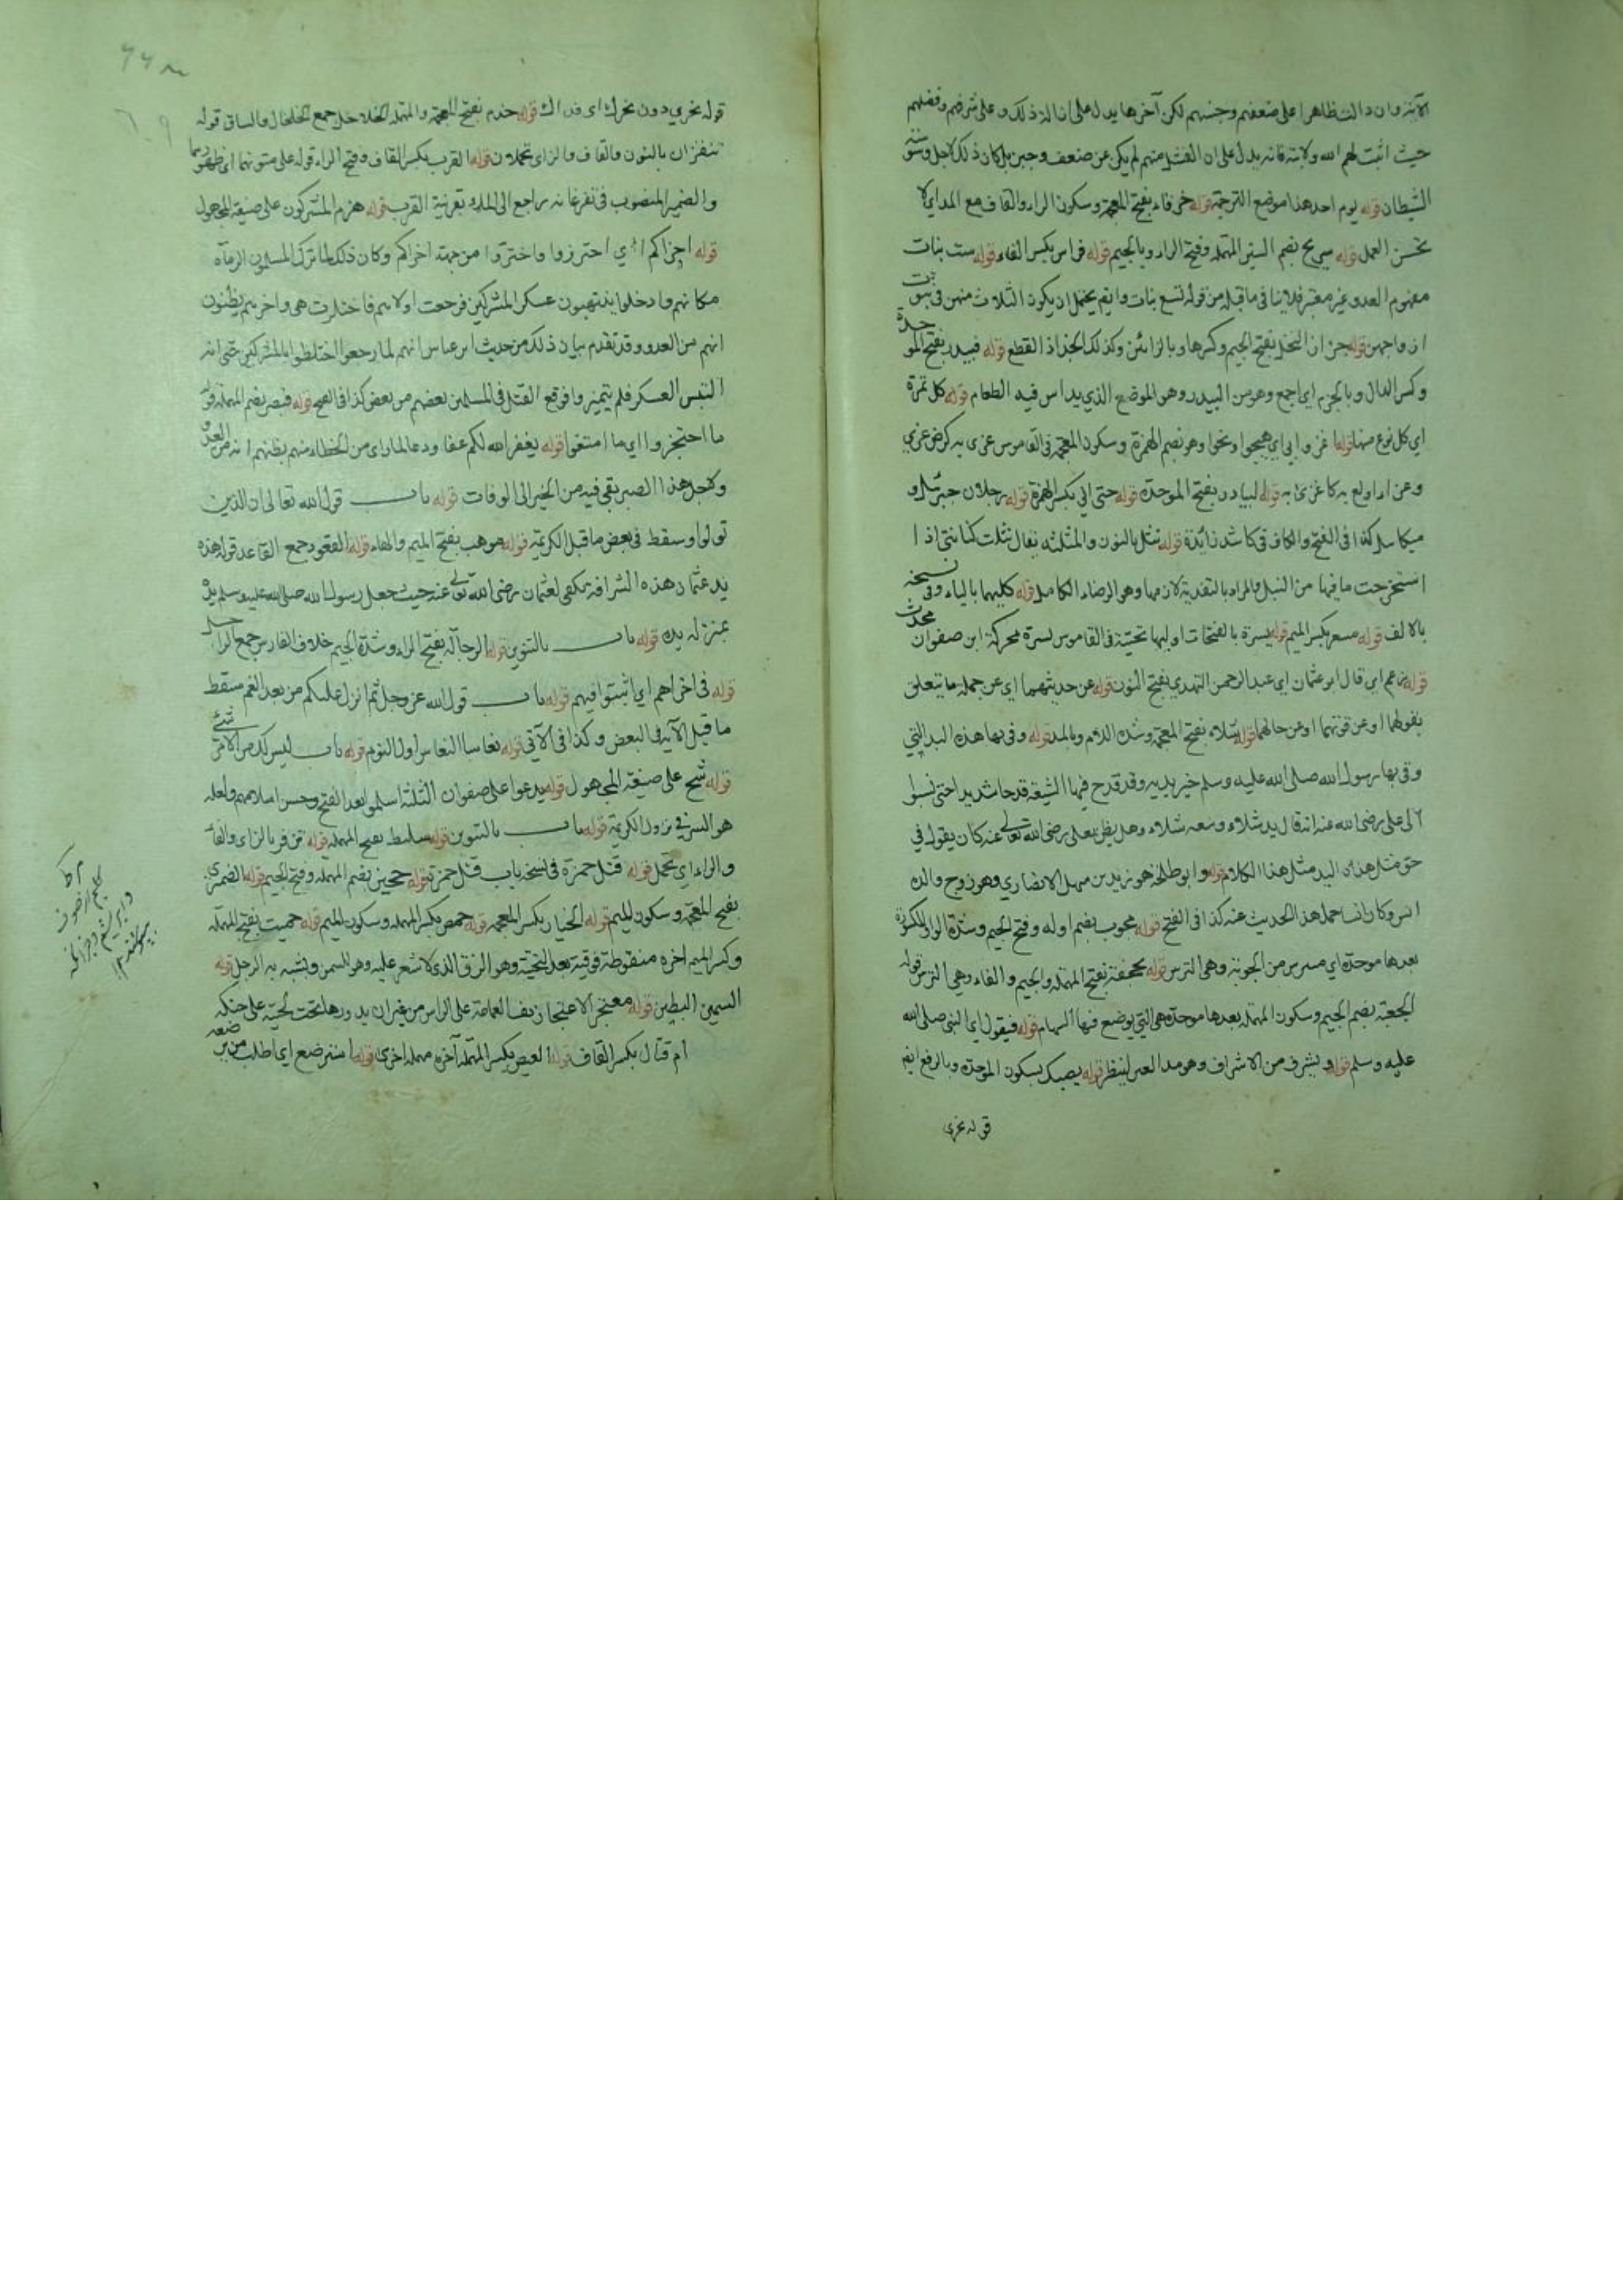 الآية وان دالت ظاهرا على ضعفهم وجبنهم لكن آخرها يدل على ازالة ذلك وعلى شرفهم وفضلهم
حيث اثبت لهم الله ولايته فانه يدل على ان الفشل منهم لم يكن عن ضعف وجبن بل كان ذلك لاجل وسوسة
الشيطان قوله يوم احد هذا موضع الترجمة قوله خرقاء بفتح المعجمة وسكون الراء والقاف مع المد اي لا
تحسن العمل قوله سريج بضم السين المهملة وفتح الراء وبالجيم قوله فراس بكسر الفاء قوله ست بنات
مفهوم العدد غير معتبر فلا ينافي ما قبله من قوله تسع بنات وايضا يحتمل ان يكون الثلاث منهن في بيوت
ازواجهن قوله جزاز النخل بفتح الجيم وكسرها وبالزائين وكذلك الجذاذ القطع قوله فبيدر بفتح الموحدة
وكسر الدال وبالجزم اي اجمع وهو من البيدر وهو الموضع الذي يداس فيه الطعام قوله كل تمرة
اي كل نوع منها قوله اغزوا بي اي هيجوا وهو بضم الهمزة وسكون المعجمة في القاموس غرى به كرضي غري
وغراء اولع به كاغرى به قوله البيادر بفتح الموحدة قوله حتى اني بكسر الهمزة قوله رجلان جبرئيل و
ميكائيل كذا في الفتح والكاف في كاشد زائدة قوله نثل بالنون والمثلثة يقال نثلت كنانتي اذا
استخرجت ما فيها من النبل والمراد بالتفدية لازمها وهو الرضاء الكامل قوله كليهما بالياء وفي نسخة
بالالف قوله مسعر بكسر الميم قوله يسرة بالفتحات اولها تحتية في القاموس يسرة محركة ابن صفوان محدث
قوله زعم اي قال ابو عثمان اي عبد الرحمن النهدي بفتح النون قوله عن حديثهما اي عن جملة ما يتعلق
بقولهما او عن قوتهما او عن حالهما قوله شلاء بفتح المعجمة وشدة اللام وبالمد قوله وقى بها هذه اليد التي
وقى بها رسول الله صلى الله عليه وسلم خير يديه وقد قدح فيها الشيعة قدحا شديدا حتى نسبوا
الى علي رضي الله عنه انه قال يد شلاء وسعه شلاء وهل يظن بعلي رضي الله تعالى عنه كان يقول في
حق مثل هذه اليد مثل هذا الكلام قوله وابو طلحة هو زيد بن سهل الانصاري وهو زوج والدة
انس وكان انس حمل هذا الحديث عنه كذا في الفتح قوله مجوب بضم اوله وفتح الجيم وشدة الواو المكسورة
بعدها موحدة اي مترس من الجوبة وهي الترس قوله بحجفة بفتح المهملة والجيم والفاء وهي الترس قوله
الجعبة بضم الجيم وسكون المهملة بعدها موحدة هي التي يوضع فيها السهام قوله فيقول اي النبي صلى الله
عليه وسلم قوله ويشرف من الاشراف وهو مد العين لينظر قوله يصبك بسكون الموحدة وبالرفع ايضا
قوله نحري
قوله نحري دون نحرك اي فداك قوله خدم بفتح المعجمة والمهملة الخلاخل جمع الخلخال والساق قوله
تنقزان بالنون والقاف والزاي تحملان قوله القرب بكسر القاف وفتح الراء قوله على متونهما اي ظهورهما
والضمير المنصوب في تفرغانه راجع الى الماء بقرينة القرب قوله هزم المشركون على صيغة المجهول
قوله اخراكم اي احترزوا من جهة اخراكم وكان ذلك لما ترك المسلمون الرماة
مكانهم ودخلوا ينتهبون عسكر المشركين فرجعت اولاهم فاجتلدت هي واخرهم يظنون
انهم من العدو وقد تقدم بيان ذلك من حديث ابن عباس انهم لما رجعوا اختلطوا بالمشركين حتى انه
التبس العسكر فلم يتميزوا فوقع القتل في المسلمين بعضهم من بعض كذا في الفتح قوله فبصر بضم المهملة قوله
ما احتجزوا اي ما امتنعوا قوله يغفر الله لكم عفا ودعا لما رأى من الخطاء منهم بظنهم انه من العدو
ولاجل هذا الصبر بقي فيه من الخير الى الوفات قوله باب قول الله تعالى ان الذين
تولوا وسقط في بعض ما قبل الكريمة قوله موهب بفتح الميم والهاء قوله القعود جمع القاعد قوله هذه
يد عثمان هذه الشرافة تكفي لعثمان رضي الله تعالى عنه حيث جعل رسول الله صلى الله عليه وسلم يده
بمنزلة يده قوله باب بالتنوين قوله الرجالة بفتح الراء وشدة الجيم خلاف الفارس جمع الراجل
قوله في اخراهم اي اثبتوا فيهم قوله باب قول الله عز وجل ثم انزل عليكم من بعد الغم سقط
ما قبل الآية في البعض وكذا في الآتي قوله نعاسا النعاس اول النوم قوله باب ليس لك من الامر شئ
قوله شج على صيغة المجهول قوله يدعوا على صفوان الثلثة اسلموا بعد الفتح وحسن اسلامهم ولعله
هو السر في نزول الكريمة قوله باب بالتنوين قوله سليط بفتح المهملة قوله تزفر بالزاي والفاء
والراء اي تحمل قوله قتل حمزة في نسخة باب قتل حمزة قوله حجين بضم المهملة وفتح الجيم قوله الضمري
بفتح المعجمة وسكون الميم قوله الخيار بكسر المعجمة قوله حمص بكسر المهملة وسكون الميم قوله حميت بفتح المهملة
وكسر الميم اخره منقوطة فوقية بعد التحتية وهو الزق الذي لا شعر عليه وهو للسمن ويشبه به الرجل قوله
السمين البطين قوله معتجر الاعتجار لف العمامة على الراس من غير ان يديرها تحت لحيته على حنكه
ام قتال بكسر القاف قوله العيص بكسر المهملة آخره مهملة اخرى قوله استرضع اي اطلب من يرضعه